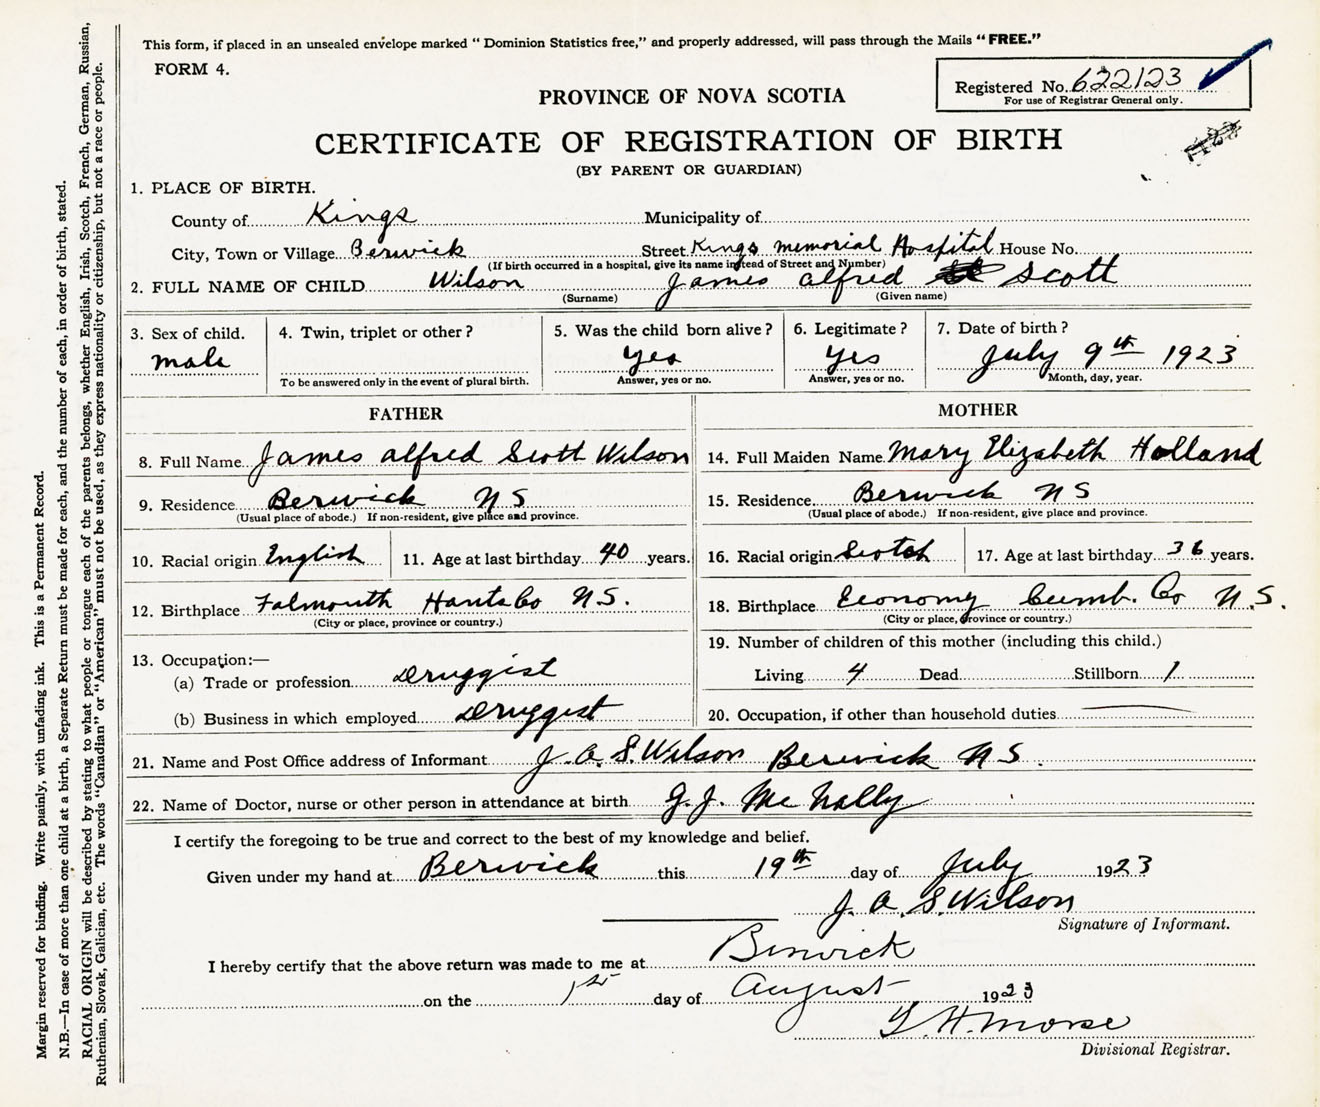 This form, if placed in an unsealed envelope marked “ Dominion Statistics free,” and properly addressed, will pass through the Mails “ FREE.”
FORM 4.
Registered No. 622123
For use of Registrar General only.
PROVINCE OF NOVA SCOTIA
CERTIFICATE OF REGISTRATION OF BIRTH
(BY PARENT OR GUARDIAN)
1. PLACE OF BIRTH.
County of Kings Municipality of
City, Town or Village Berwick Street Kings Memorial Hospital House No.
(If birth occurred in a hospital, give its name instead of Street and Number)
2. FULL NAME OF CHILD Wilson James Alfred Scott
(Surname) (Given name)
3. Sex of child. 4. Twin, triplet or other ? 5. Was the child born alive ? 6. Legitimate ? 7. Date of birth ?
male yes yes July 9th 1923
To be answered only in the event of plural birth. Answer, yes or no. Answer, yes or no. Month, day, year.
FATHER
8. Full Name James Alfred Scott Wilson
9. Residence Berwick N S
(Usual place of abode.) If non-resident, give place and province.
10. Racial origin English 11. Age at last birthday 40 years.
12. Birthplace Falmouth Hants Co N.S.
(City or place, province or country.)
13. Occupation:—
(a) Trade or profession Druggist
(b) Business in which employed Druggist
MOTHER
14. Full Maiden Name Mary Elizabeth Holland
15. Residence Berwick N S
(Usual place of abode.) If non-resident, give place and province.
16. Racial origin Scotch 17. Age at last birthday 36 years.
18. Birthplace Economy Cumb. Co N.S.
(City or place, province or country.)
19. Number of children of this mother (including this child.)
Living 4 Dead Stillborn 1
20. Occupation, if other than household duties
21. Name and Post Office address of Informant J. A. S. Wilson Berwick N S.
22. Name of Doctor, nurse or other person in attendance at birth G. J. McNally
I certify the foregoing to be true and correct to the best of my knowledge and belief.
Given under my hand at Berwick this 19th day of July 1923
J. A. S. Wilson
Signature of Informant.
I hereby certify that the above return was made to me at Berwick
on the 1st day of August 1923
H. Morse
Divisional Registrar.
Margin reserved for binding. Write plainly, with unfading ink. This is a Permanent Record.
N.B.—In case of more than one child at a birth, a Separate Return must be made for each, and the number of each, in order of birth, stated.
RACIAL ORIGIN will be described by stating to what people or tongue each of the parents belongs, whether English, Irish, Scotch, French, German, Russian,
Ruthenian, Slovak, Galician, etc. The words “Canadian” or “American” must not be used, as they express nationality or citizenship, but not a race or people.